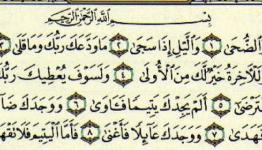 بِسْمِ اللَّهِ الرَّحْمَٰنِ الرَّحِيمِ
الضُّحَىٰ ١ وَالَّيْلِ إِذَا سَجَىٰ ٢ مَا وَدَّعَكَ رَبُّكَ وَمَا قَلَىٰ ٣
لَلْآخِرَةُ خَيْرٌ لَّكَ مِنَ الْأُولَىٰ ٤ وَلَسَوْفَ يُعْطِيكَ رَبُّكَ
تَرْضَىٰ ٥ أَلَمْ يَجِدْكَ يَتِيمًا فَـَٔاوَىٰ ٦ وَوَجَدَكَ ضَا
فَهَدَىٰ ٧ وَوَجَدَكَ عَآئِلًا فَأَغْنَىٰ ٨ فَأَمَّا الْيَتِيمَ فَلَا تَقْهَ